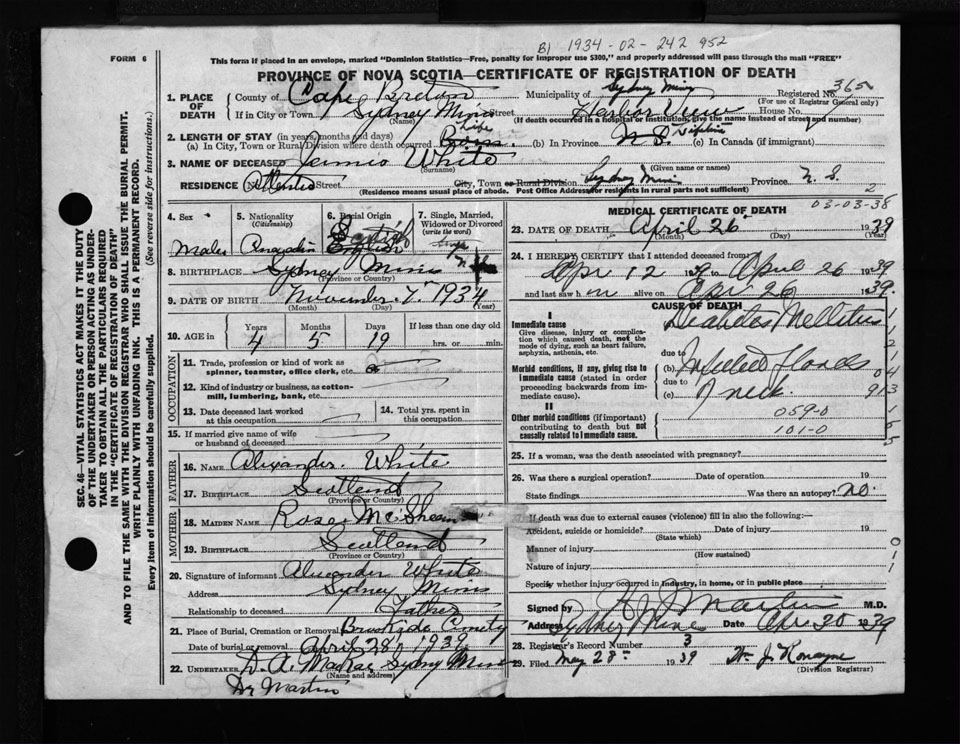 B1 1934-02-242952
FORM 6
This form if placed in an envelope, marked "Dominion Statistics—Free, penalty for improper use $300," and properly addressed will pass through the mail "FREE"
PROVINCE OF NOVA SCOTIA—CERTIFICATE OF REGISTRATION OF DEATH
1. PLACE OF DEATH
County of Cape Breton Municipality of Sydney Mines Registered No. 365
(For use of Registrar General only)
If in City or Town Sydney Mines Street Harbor View House No.
(Name) (If death occurred in a hospital or institution, give the name instead of street and number)
2. LENGTH OF STAY (in years, months and days)
(a) In City, Town or Rural Division where death occurred Life (b) In Province N.S. (c) In Canada (if immigrant)
3. NAME OF DECEASED White
(Surname) (Given name or names)
RESIDENCE No. Street City, Town or Rural Division Sydney Mines Province N.S.
(Residence means usual place of abode. Post Office Address for residents in rural parts not sufficient)
2
4. Sex
Male
5. Nationality
(Citizenship)
Canadian
6. Racial Origin
Scotch
7. Single, Married, Widowed or Divorced
(write the word)
Single
8. BIRTHPLACE Sydney Mines N.S.
(Province or Country)
9. DATE OF BIRTH November 7 1934
(Month) (Day) (Year)
10. AGE in Years Months Days If less than one day old
4 5 19 hrs. or min.
OCCUPATION
11. Trade, profession or kind of work as spinner, teamster, office clerk, etc.
12. Kind of industry or business, as cotton-mill, lumbering, bank, etc.
13. Date deceased last worked at this occupation
14. Total yrs. spent in this occupation
15. If married give name of wife or husband of deceased
FATHER
16. NAME Alexander White
17. BIRTHPLACE Scotland
(Province or Country)
MOTHER
18. MAIDEN NAME Rose
19. BIRTHPLACE Scotland
(Province or Country)
20. Signature of informant Alexander White
Address Sydney Mines
Relationship to deceased Father
21. Place of Burial, Cremation or Removal Brookside Cemetery
Date of burial or removal April 28 1939
22. UNDERTAKER D. A. MacRae Sydney Mines
(Name and address)
Dr Martin
MEDICAL CERTIFICATE OF DEATH 03-03-38
23. DATE OF DEATH April 26 1939
(Month) (Day) (Year)
24. I HEREBY CERTIFY that I attended deceased from
Apr 12 1939 to April 26 1939
and last saw h im alive on Apr 26 1939.
CAUSE OF DEATH
I
Immediate cause
Give disease, injury or complication which caused death, not the mode of dying, such as heart failure, asphyxia, asthenia, etc.
Diabetes Mellitus
due to
Morbid conditions, if any, giving rise to immediate cause (stated in order proceeding backwards from immediate cause).
(b) Infected Glands
due to
(c) of neck
II
Other morbid conditions (if important) contributing to death but not causally related to immediate cause.
059-0
101-0
25. If a woman, was the death associated with pregnancy?
26. Was there a surgical operation? Date of operation 19
State findings Was there an autopsy? no.
If death was due to external causes (violence) fill in also the following:—
Accident, suicide or homicide? Date of injury 19
(State which)
Manner of injury
(How sustained)
Nature of injury
Specify whether injury occurred in industry, in home, or in public place
Signed by Martin M.D.
Address Sydney Mines Date Apr 30 1939
28. Registrar's Record Number 3
29. Filed May 28 1939
(Division Registrar)
SEC. 46—VITAL STATISTICS ACT MAKES IT THE DUTY
OF THE UNDERTAKER OR PERSON ACTING AS UNDER-
TAKER TO OBTAIN ALL THE PARTICULARS REQUIRED
IN THE "CERTIFICATE OF REGISTRATION OF DEATH"
AND TO FILE THE SAME WITH THE DIVISION REGISTRAR WHO SHALL ISSUE THE BURIAL PERMIT.
WRITE PLAINLY WITH UNFADING INK. THIS IS A PERMANENT RECORD.
Every item of Information should be carefully supplied. (See reverse side for instructions.)